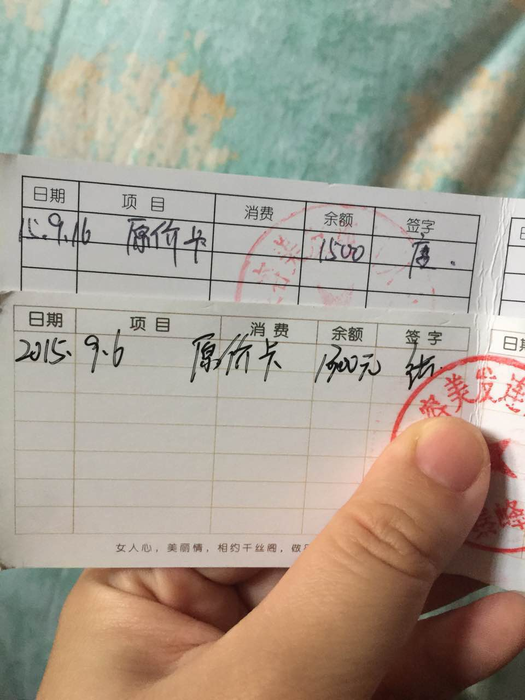 日期 项目 消费 余额 签字
15.9.16 原价卡 1500
日期 项目 消费 余额 签字 日期
2015.9.6 原价卡 1300元
美发连
女人心，美丽情，相约千丝阁，做